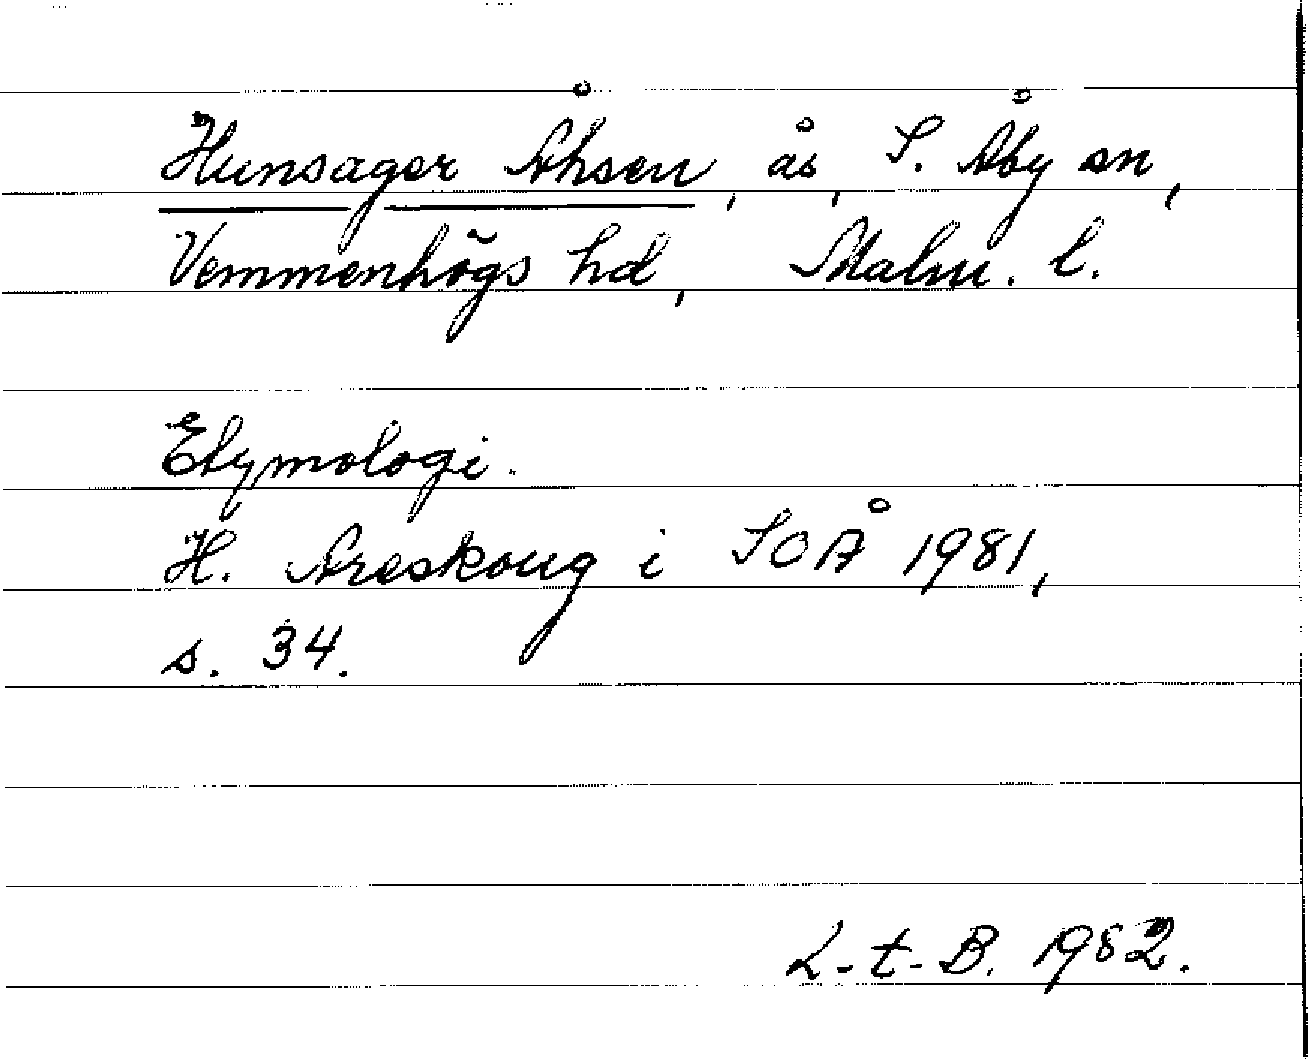 Hunsager Åhsen, ås, S. Åby sn,
Vemmenhögs hd, Malm. l.
Etymologi.
H. Areskoug i SOÅ 1981,
s. 34.
L-t-B. 1982.